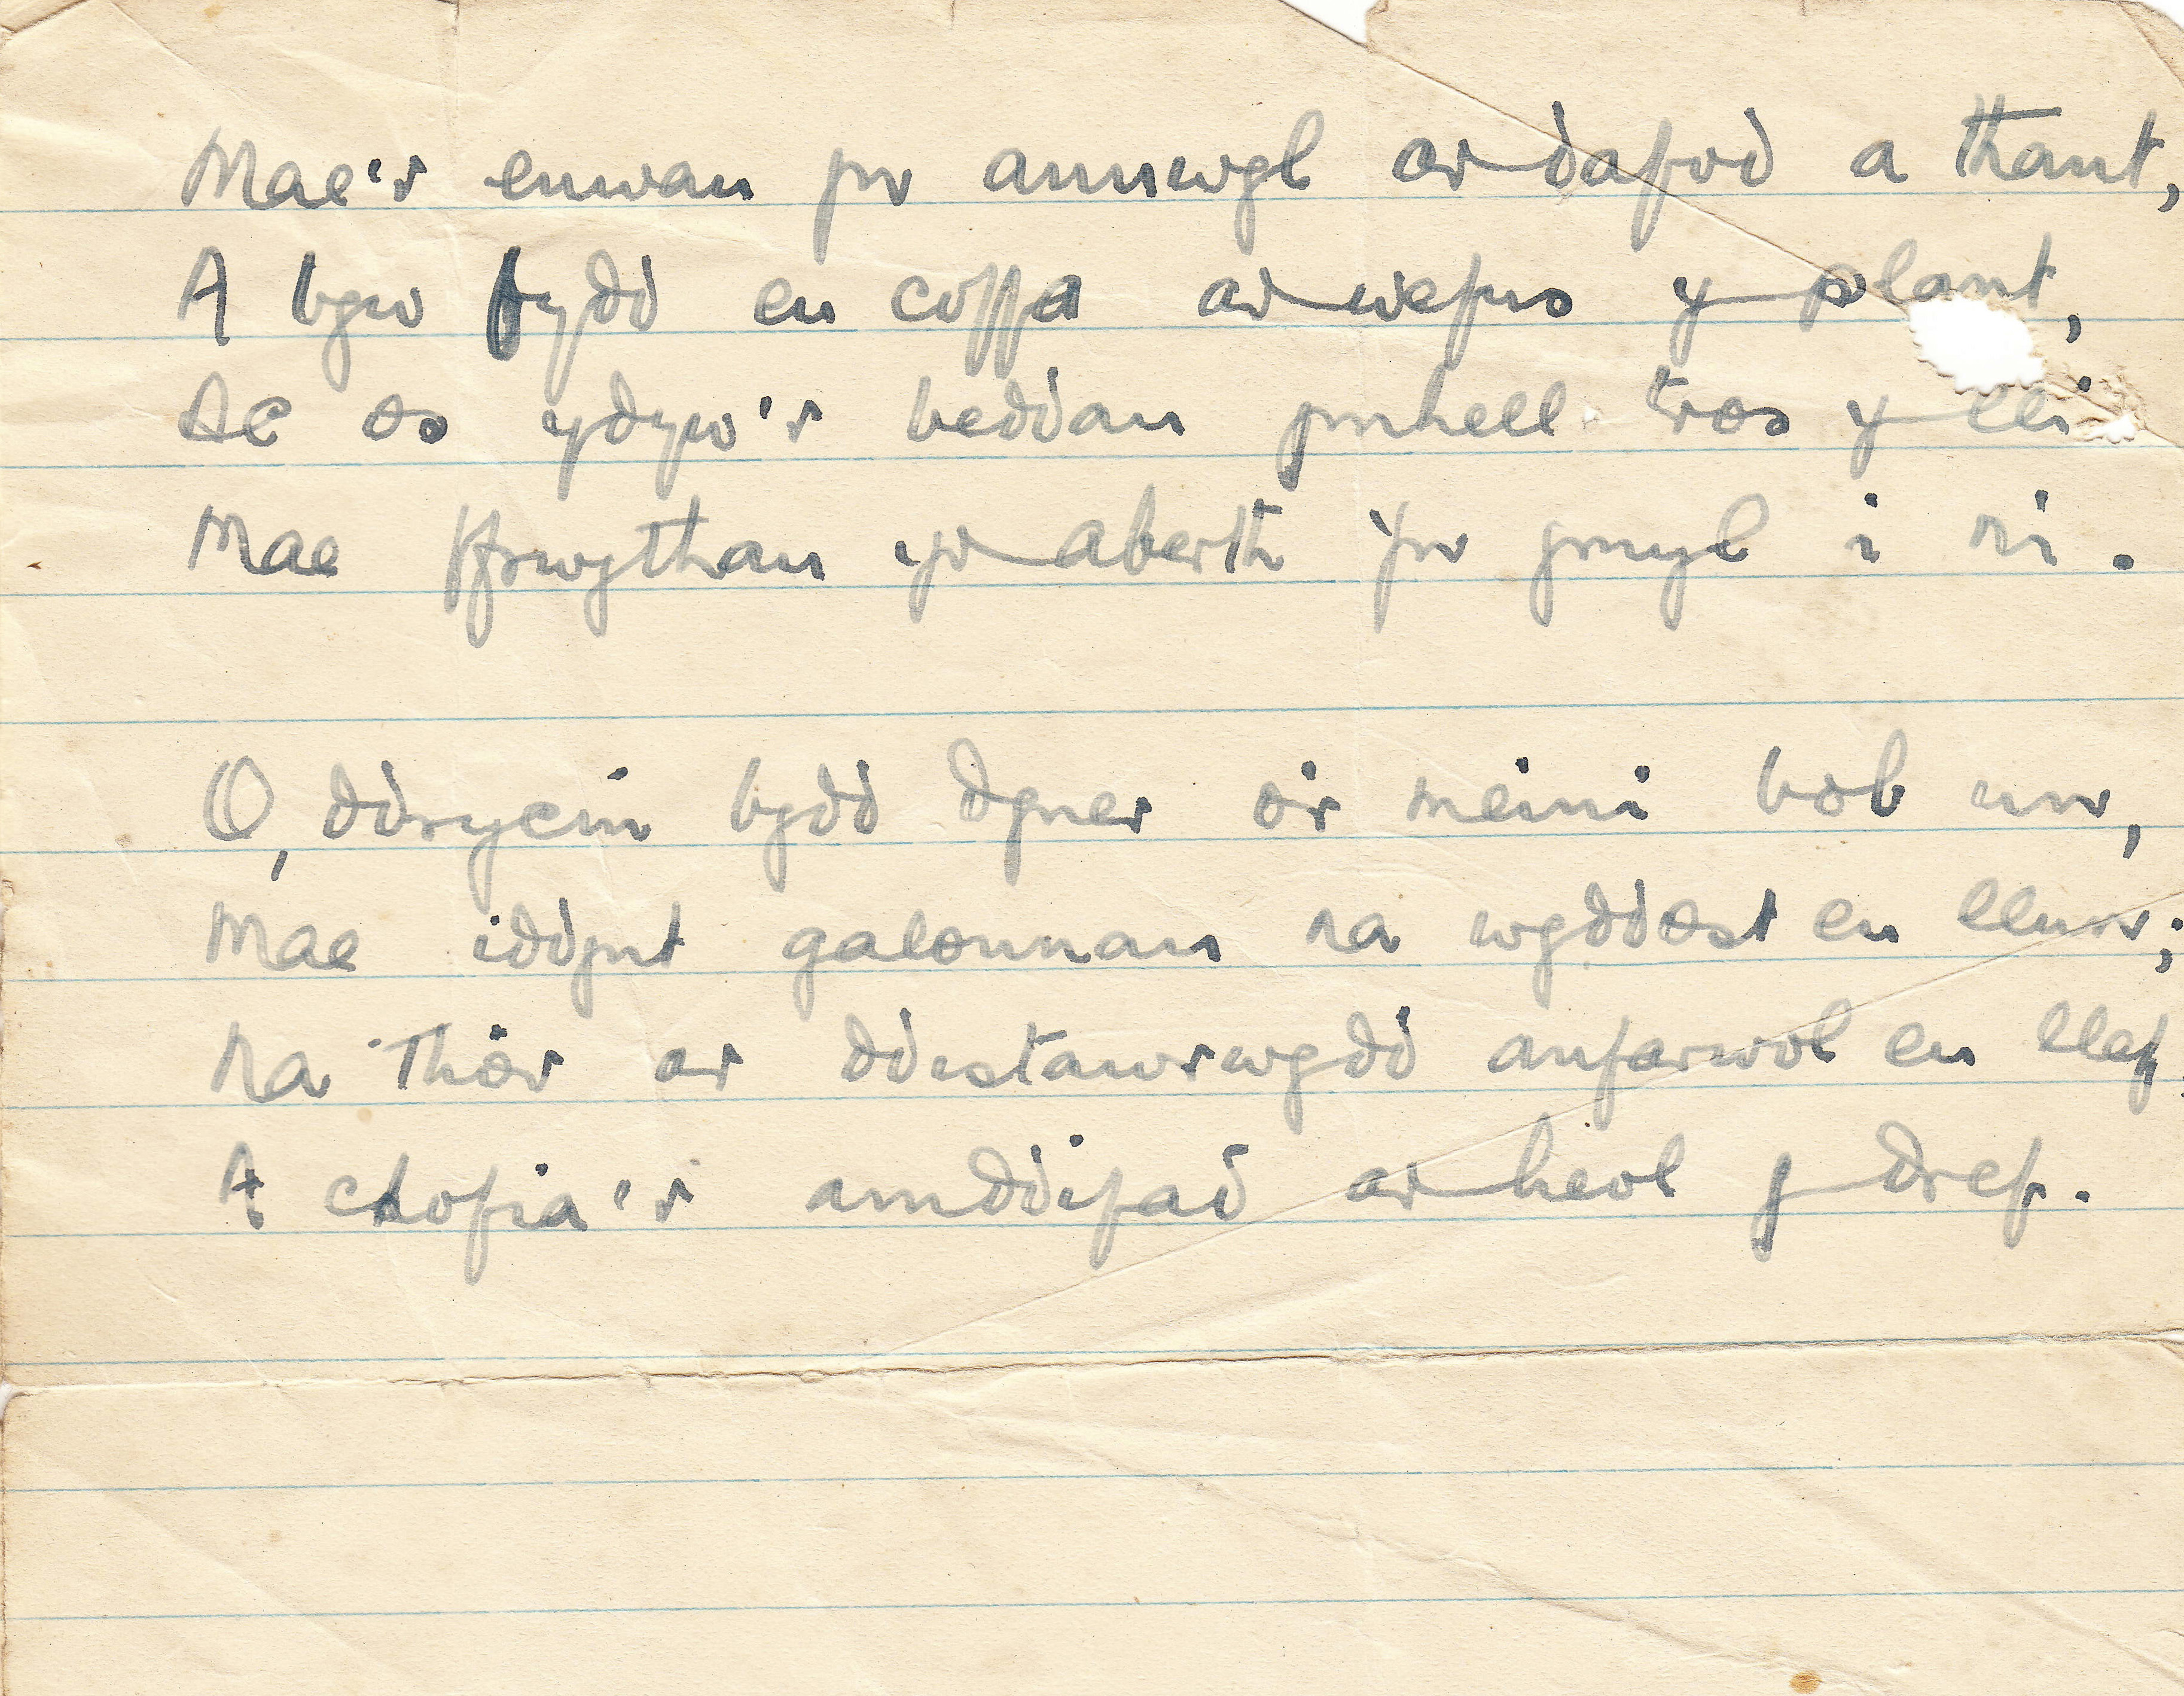 Mae'r enwau yn annwyl ar dafod a thant,
A byw fydd eu coffa ar wefus y plant,
Ac os ydyw'r beddau ymhell tros y lli
Mae ffrwythau yr aberth yn ymyl i ni.
O, ddrycin bydd dyner o'r meini bob un,
Mae iddynt galonnau na wyddost eu llun;
Na thor ar ddistawrwydd anfarwol eu llef,
A chofia'r amddifad ar heol y dref.